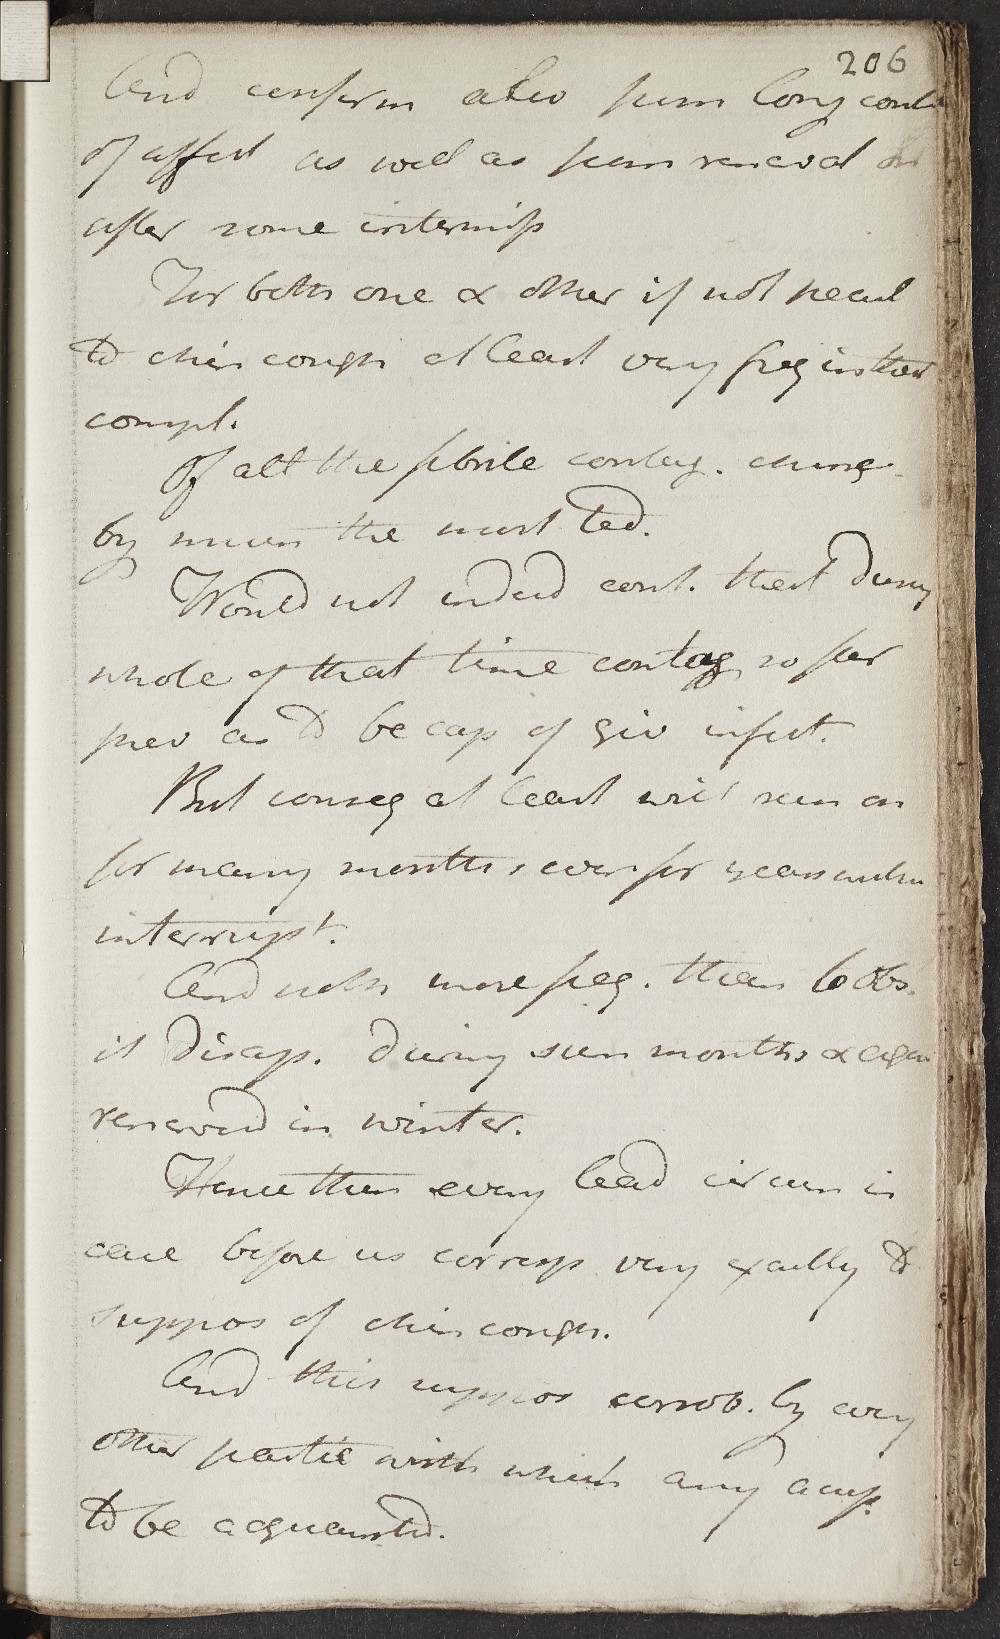 206
And confirm also from long cont
of affect as well as from renewal
after some intermiss
For both one & other if not pecul
to chin cough at least very freq in that
compl.
Of all the febrile contag. ching
by means the most ted.
Would not indeed cont. that during
whole of that time contag so far
prev as to be cap of giv infect.
But conseq at least will run on
for many months, even for years
interrupt.
And noth more freq. than to obs.
it disap. during sum months & again
renewed in winter.
Hence then every lead circum in
case before us corresp very exactly to
suppos of chin cough.
And this suppos corrob. by every
other partic with which any
to be acquainted.